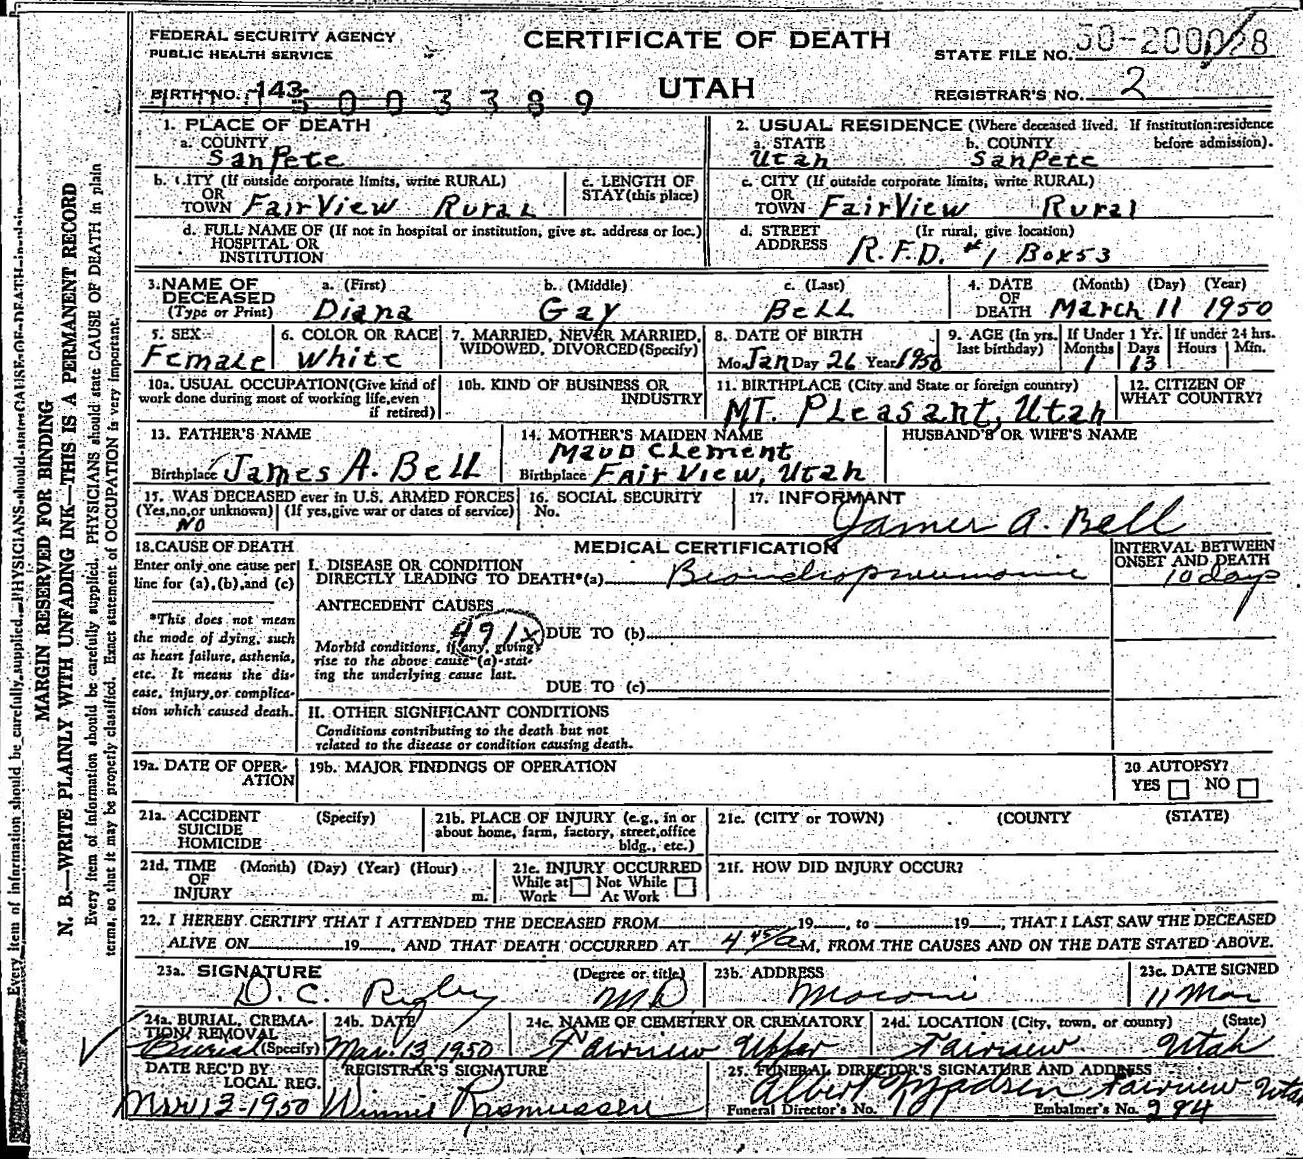 FEDERAL SECURITY AGENCY
PUBLIC HEALTH SERVICE
CERTIFICATE OF DEATH
UTAH
STATE FILE NO.
REGISTRAR'S NO. 2
BIRTH NO. 143-
5003389
1. PLACE OF DEATH
a. COUNTY
SanPete
2. USUAL RESIDENCE (Where deceased lived. If institution: residence before admission).
a. STATE b. COUNTY
Utah SanPete
b. CITY (If outside corporate limits, write RURAL)
OR
TOWN FairView Rural
c. LENGTH OF
STAY (this place)
c. CITY (If outside corporate limits, write RURAL)
OR
TOWN FairView Rural
d. FULL NAME OF (If not in hospital or institution, give st. address or loc.)
HOSPITAL OR
INSTITUTION
d. STREET (If rural, give location)
ADDRESS R.F.D. #1 Box 53
3. NAME OF DECEASED
(Type or Print)
a. (First) b. (Middle) c. (Last)
Diana Gay Bell
4. DATE OF DEATH (Month) (Day) (Year)
March 11 1950
5. SEX
Female
6. COLOR OR RACE
White
7. MARRIED, NEVER MARRIED,
WIDOWED, DIVORCED (Specify)
8. DATE OF BIRTH
Mo. Jan Day 26 Year 1950
9. AGE (In yrs.
last birthday)
If Under 1 Yr.
Months Days
1 13
If under 24 hrs.
Hours Min.
10a. USUAL OCCUPATION (Give kind of
work done during most of working life, even
if retired)
10b. KIND OF BUSINESS OR
INDUSTRY
11. BIRTHPLACE (City and State or foreign country)
MT. Pleasant, Utah
12. CITIZEN OF
WHAT COUNTRY?
13. FATHER'S NAME
Birthplace James A. Bell
14. MOTHER'S MAIDEN NAME
Maud Clement
Birthplace FairView, Utah
HUSBAND'S OR WIFE'S NAME
15. WAS DECEASED ever in U.S. ARMED FORCES
(Yes, no, or unknown) (If yes, give war or dates of service)
NO
16. SOCIAL SECURITY
No.
17. INFORMANT
James A. Bell
18. CAUSE OF DEATH
Enter only one cause per
line for (a), (b), and (c)
*This does not mean
the mode of dying, such
as heart failure, asthenia,
etc. It means the dis-
ease, injury, or complica-
tion which caused death.
MEDICAL CERTIFICATION
INTERVAL BETWEEN
ONSET AND DEATH
I. DISEASE OR CONDITION
DIRECTLY LEADING TO DEATH*(a) Bronchopneumonia
10 days
ANTECEDENT CAUSES
491X
DUE TO (b)
Morbid conditions, if any, giving
rise to the above cause (a) stat-
ing the underlying cause last.
DUE TO (c)
II. OTHER SIGNIFICANT CONDITIONS
Conditions contributing to the death but not
related to the disease or condition causing death.
19a. DATE OF OPER-
ATION
19b. MAJOR FINDINGS OF OPERATION
20 AUTOPSY?
YES NO
21a. ACCIDENT (Specify)
SUICIDE
HOMICIDE
21b. PLACE OF INJURY (e.g., in or
about home, farm, factory, street, office
bldg., etc.)
21c. (CITY or TOWN) (COUNTY (STATE)
21d. TIME (Month) (Day) (Year) (Hour)
OF
INJURY m.
21e. INJURY OCCURRED
While at Not While
Work At Work
21f. HOW DID INJURY OCCUR?
22. I HEREBY CERTIFY THAT I ATTENDED THE DECEASED FROM 19 , to 19 , THAT I LAST SAW THE DECEASED
ALIVE ON 19 , AND THAT DEATH OCCURRED AT 4 45/a M, FROM THE CAUSES AND ON THE DATE STATED ABOVE.
23a. SIGNATURE (Degree or title)
D. C. Rigby MD
23b. ADDRESS
Moroni
23c. DATE SIGNED
11 Mar
24a. BURIAL, CREMA-
TION, REMOVAL
Burial (Specify)
24b. DATE
Mar. 13, 1950
24c. NAME OF CEMETERY OR CREMATORY
Fairview Upper
24d. LOCATION (City, town, or county) (State)
Fairview Utah
DATE REC'D BY
LOCAL REG.
Mar 13-1950
REGISTRAR'S SIGNATURE
Winnie Rasmussen
25. FUNERAL DIRECTOR'S SIGNATURE AND ADDRESS
Albert Madsen Fairview Utah
Funeral Director's No. Embalmer's No. 294
MARGIN RESERVED FOR BINDING
N. B.—WRITE PLAINLY WITH UNFADING INK—THIS IS A PERMANENT RECORD
Every item of information should be carefully supplied. PHYSICIANS should state CAUSE OF DEATH in plain
terms, so that it may be properly classified. Exact statement of OCCUPATION is very important.
Every item of information should be carefully supplied. PHYSICIANS should state CAUSE OF DEATH in